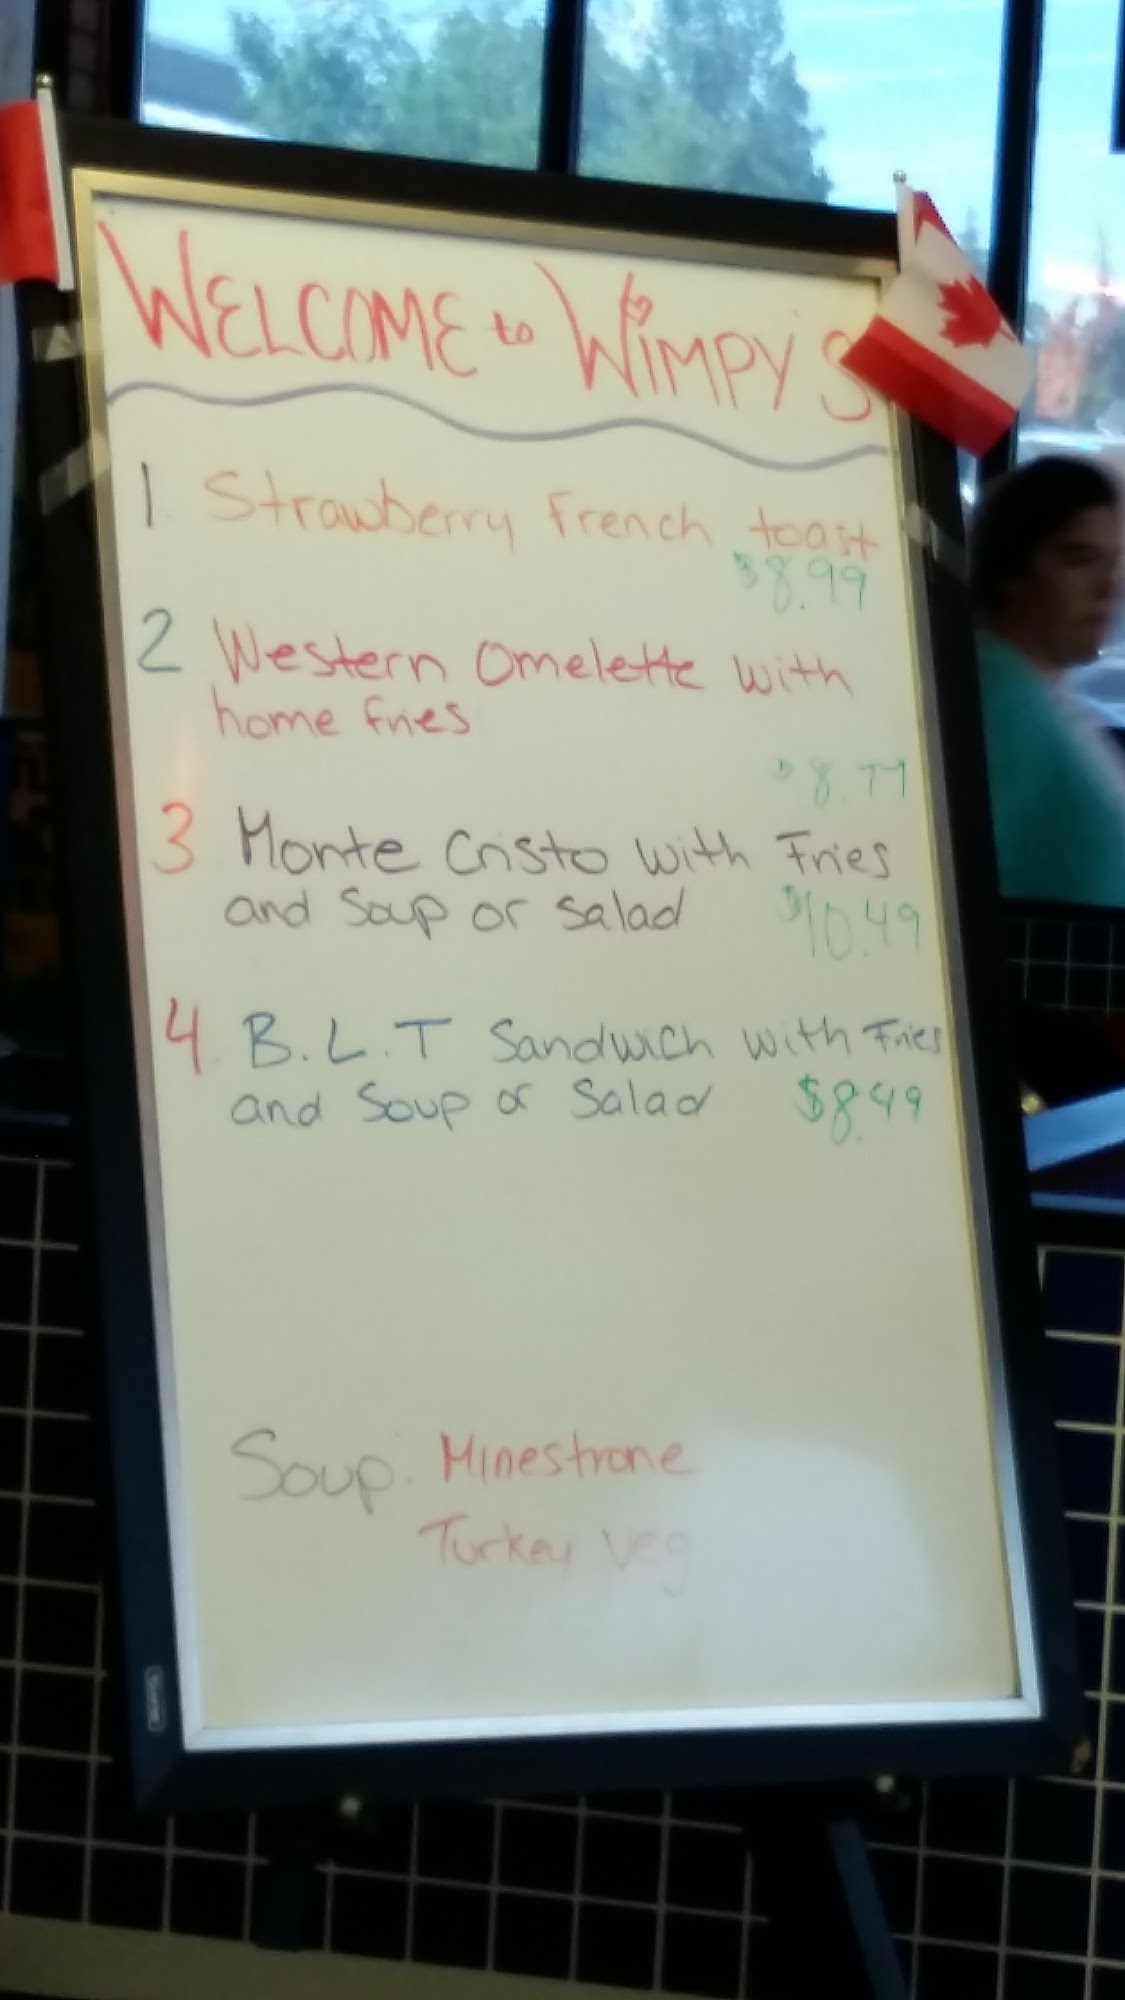 WELCOME to WIMPY'S
1. Strawberry French toast
$8.99
2 Western Omelette with
home fries
$8.77
3 Monte Cristo with Fries
and Soup or salad $10.49
4. B.L.T Sandwich with Fries
and Soup or Salad $8.49
Soup: Minestrone
Turkey Veg